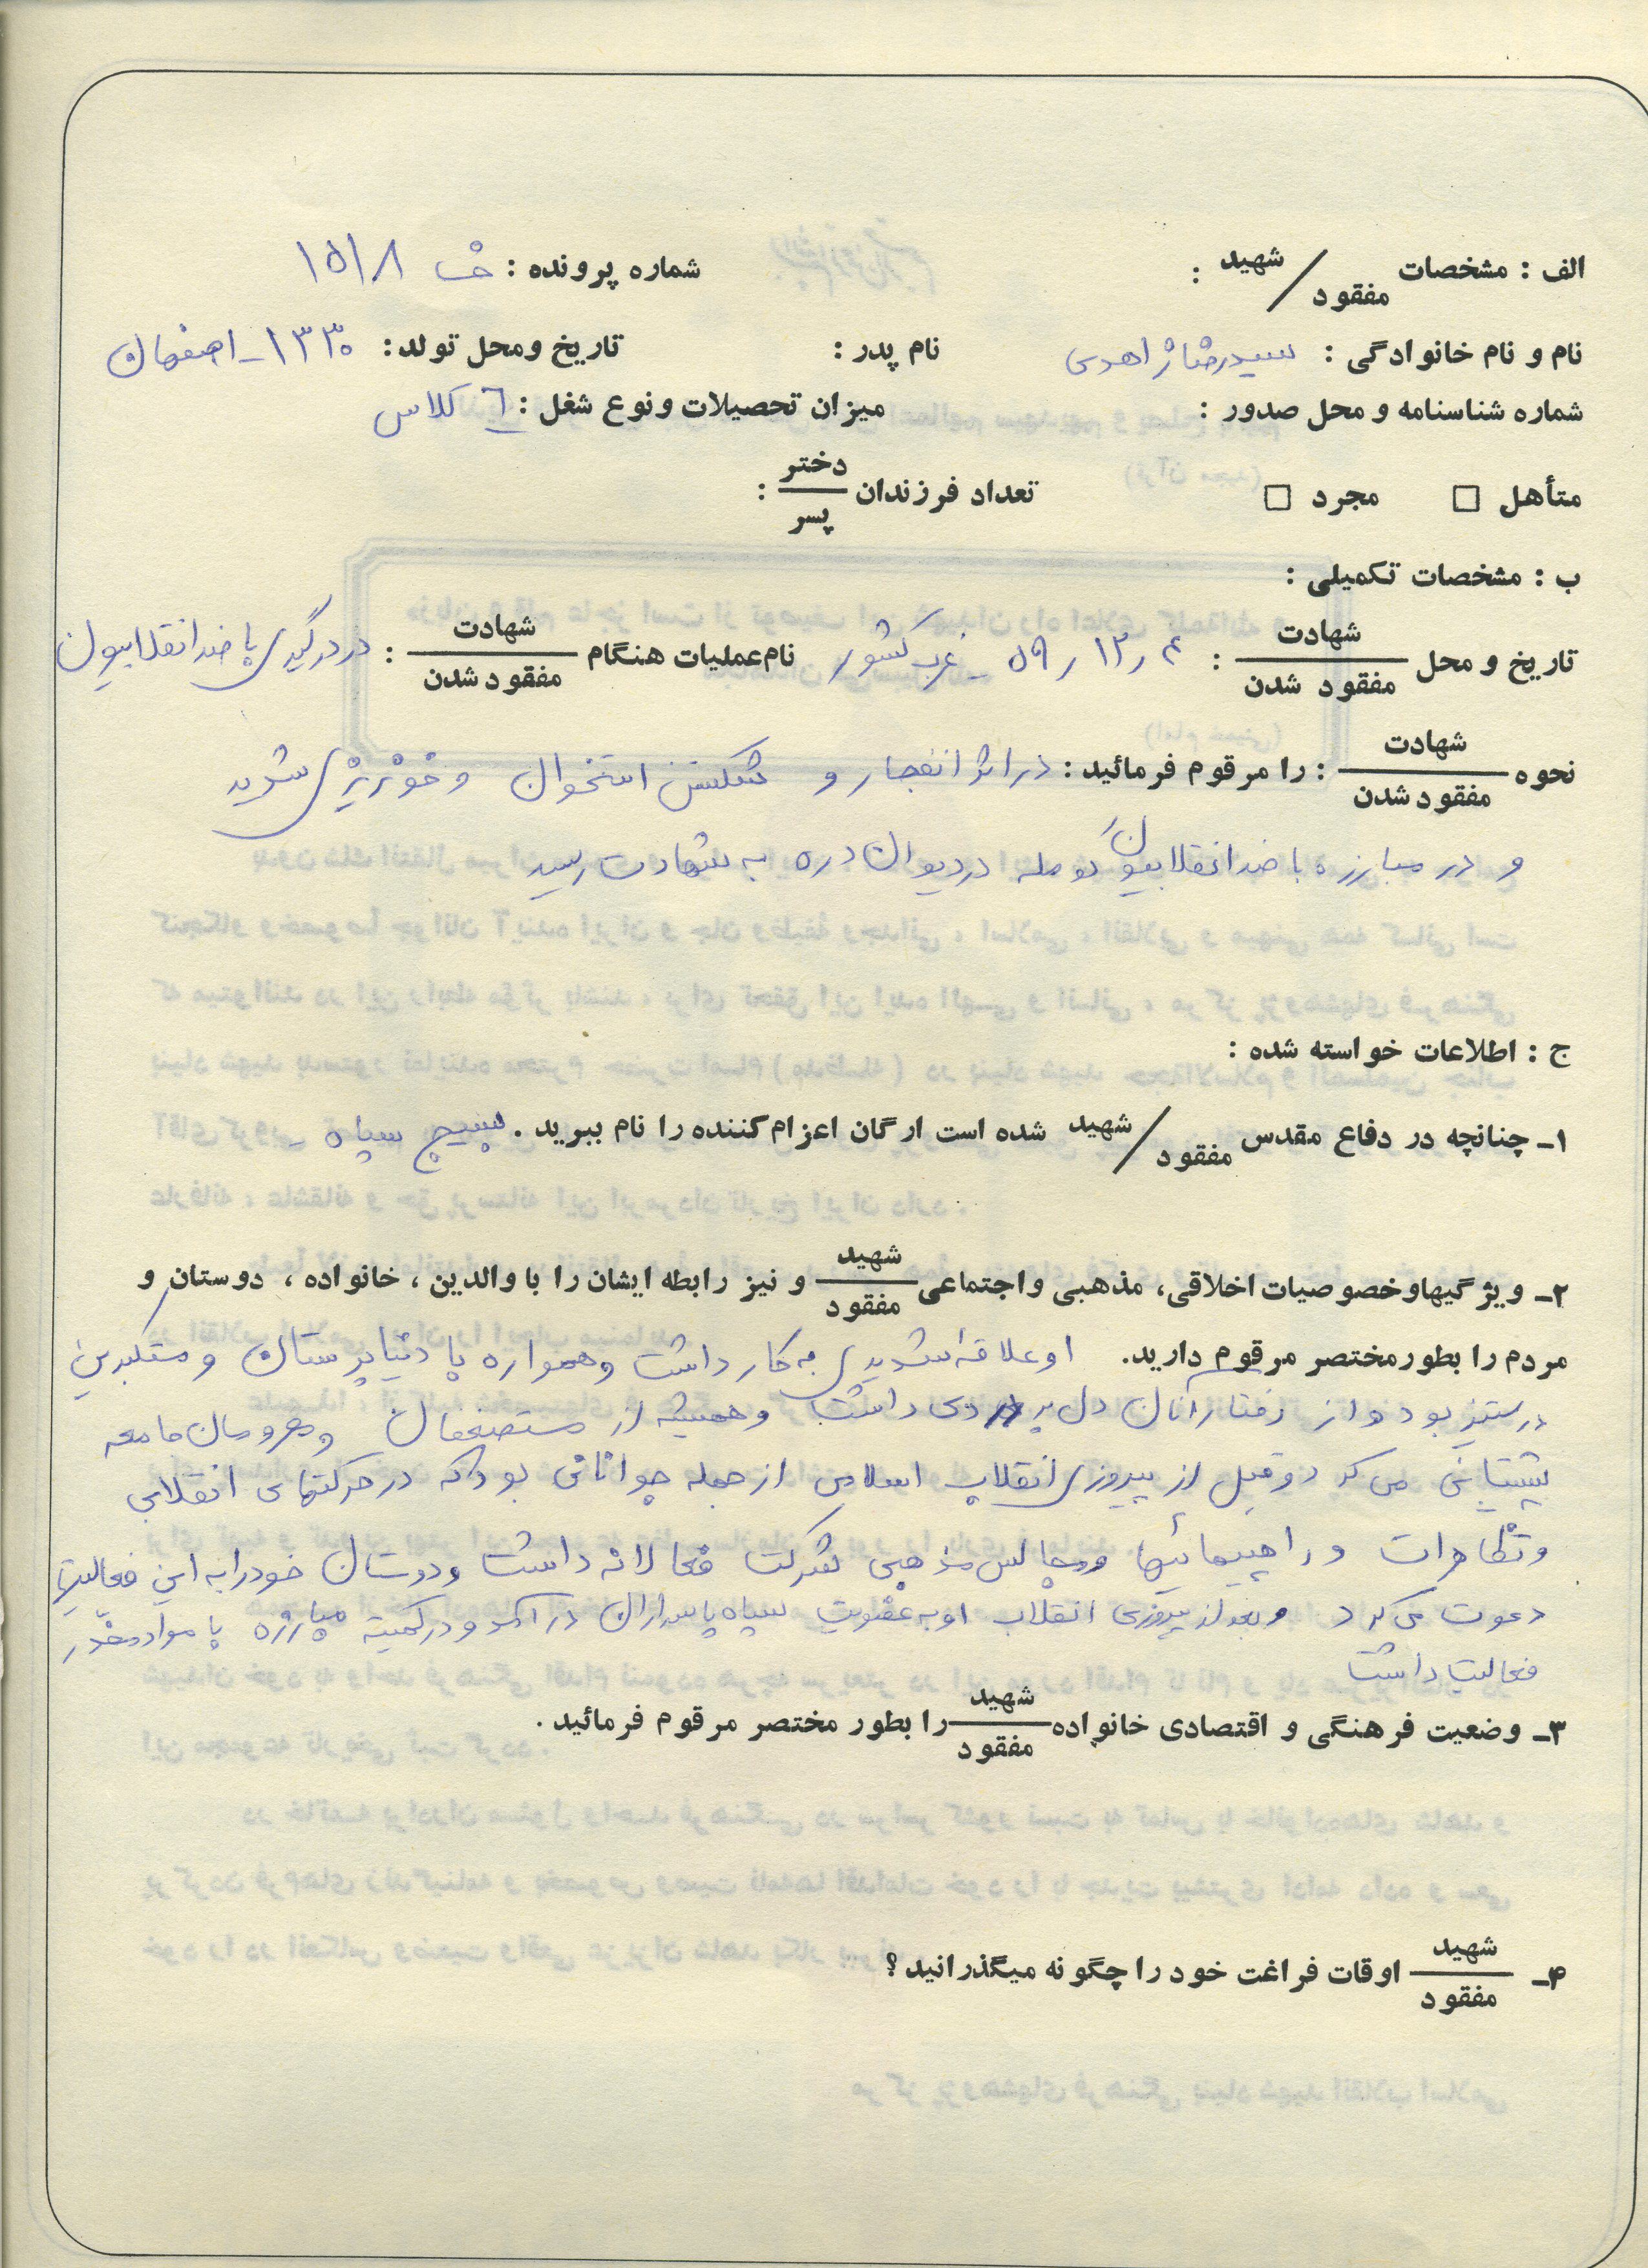 الف : مشخصات شهید / مفقود : شماره پرونده : ۱۵۱۸
نام و نام خانوادگی : سیدرضا زاهدی نام پدر : تاریخ ومحل تولد : ۱۳۳۰ - اصفهان
شماره شناسنامه و محل صدور : میزان تحصیلات ونوع شغل : ٦ کلاس
متأهل □ مجرد □ تعداد فرزندان دختر / پسر :
ب : مشخصات تکمیلی :
تاریخ و محل شهادت / مفقود شدن : ۵۹٫۱۲٫۴ - غرب کشور نام عملیات هنگام شهادت / مفقود شدن : در درگیری با ضدانقلابیون
نحوه شهادت / مفقود شدن : را مرقوم فرمائید : در اثر انفجار و شکستن استخوان و خونریزی شدید
و در مبارزه با ضدانقلابیون کومله در دیوان دره به شهادت رسید
ج : اطلاعات خواسته شده :
۱ـ چنانچه در دفاع مقدس شهید / مفقود شده است ارگان اعزام کننده را نام ببرید . بسیج سپاه
۲ـ ویژگیهاوخصوصیات اخلاقی، مذهبی واجتماعی شهید / مفقود و نیز رابطه ایشان را با والدین ، خانواده ، دوستان و
مردم را بطورمختصر مرقوم دارید. او علاقهٔ شدیدی به کار داشت وهمواره با دنیاپرستان و مستکبرین
درستیز بود و از رفتار آنان دل پر دردی داشت وهمیشه از مستضعفان و محرومان جامعه
پشتیبانی می کرد و قبل از پیروزی انقلاب اسلامی از جمله جوانانی بود که در حرکتهای انقلابی
و تظاهرات و راهپیمائیها ومجالس مذهبی شرکت فعالانه داشت ودوستان خود را به این فعالیتها
دعوت می کرد و بعد از پیروزی انقلاب او به عضویت سپاه پاسداران در آمد و در کمیته مبارزه با مواد مخدر
فعالیت داشت
۳ـ وضعیت فرهنگی و اقتصادی خانواده شهید / مفقود را بطور مختصر مرقوم فرمائید .
۴ـ شهید / مفقود اوقات فراغت خود را چگونه میگذرانید ؟